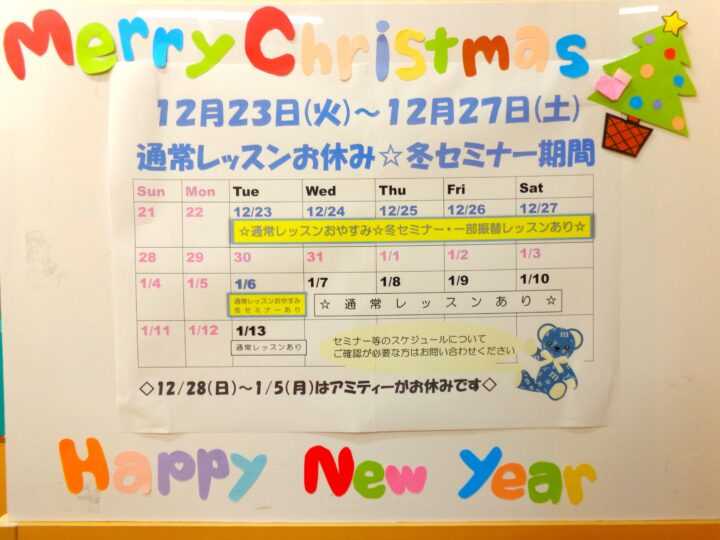 Merry Christmas
12月23日(火)～12月27日(土)
通常レッスンお休み☆冬セミナー期間
Sun Mon Tue Wed Thu Fri Sat
21 22 12/23 12/24 12/25 12/26 12/27
☆通常レッスンおやすみ☆冬セミナー・一部振替レッスンあり☆
28 29 30 31 1/1 1/2 1/3
1/4 1/5 1/6 1/7 1/8 1/9 1/10
通常レッスンおやすみ
冬セミナーあり
☆通常レッスンあり☆
1/11 1/12 1/13
通常レッスンあり
セミナー等のスケジュールについて
ご確認が必要な方はお問い合わせください
◇12/28(日)～1/5(月)はアミティーがお休みです◇
Happy New Year